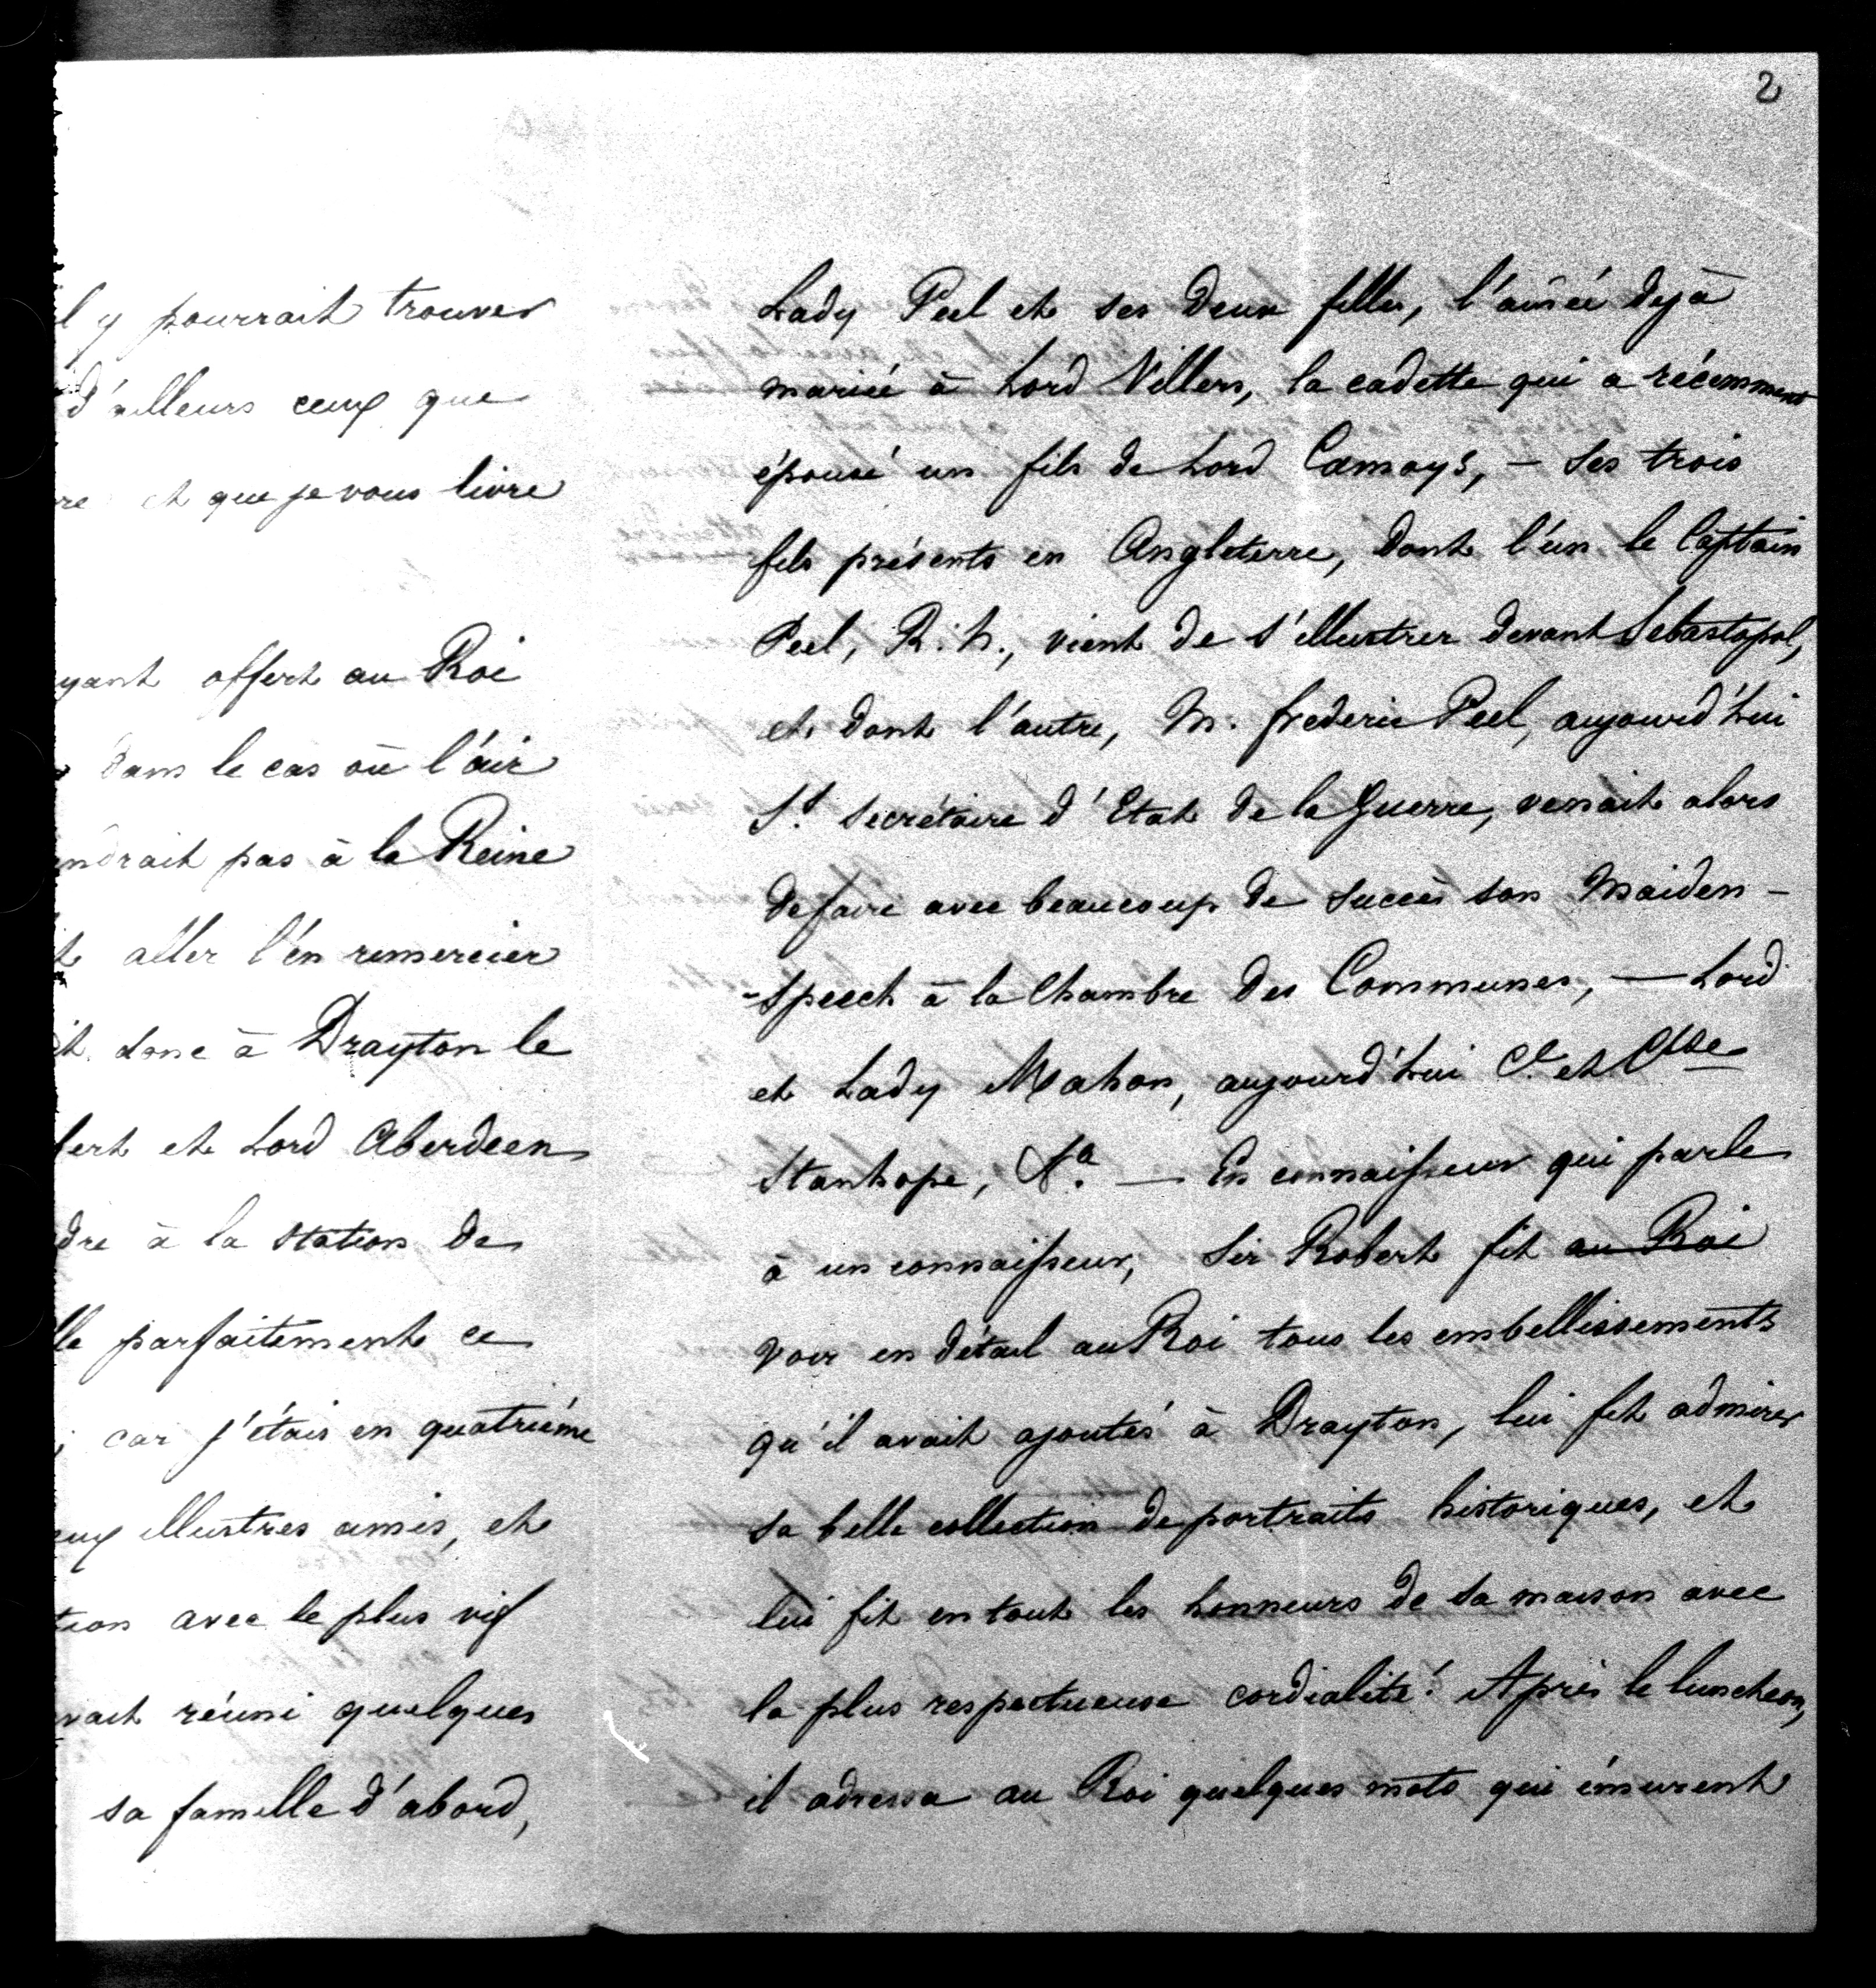 2
y pourrait trouver
d'ailleurs ceux que
et que je vous livre
offert au Roi
dans le cas où l'air
pas à la Reine
aller l'en remercier
donc à Drayton le
et Lord Aberdeen
à la station de
parfaitement ce
car j'étais en quatrième
illustres amis, et
avec le plus vif
réuni quelques
sa famille d'abord,
Lady Peel et ses deux filles, l'aînée déjà
mariée à Lord Villers, la cadette qui a récemment
épousé un fils de Lord Camoys, — ses trois
fils présents en Angleterre, dont l'un le Captain
Peel, R. N., vient de s'illustrer devant Sebastopol,
et dont l'autre, M. frederic Peel, aujourd'hui
Ss. Secrétaire d'Etat de la Guerre, venait alors
de faire avec beaucoup de succès son Maiden-
-Speech à la Chambre des Communes, — Lord
et Lady Mahon, aujourd'hui Cte et Ctsse
Stanhope, &a. — En connaisseur qui parle
à un connaisseur, Sir Robert fit au Roi
voir en détail au Roi tous les embellissements
qu'il avait ajoutés à Drayton, lui fit admirer
sa belle collection de portraits historiques, et
lui fit en tout les honneurs de sa maison avec
la plus respectueuse cordialité. Après le luncheon,
il adressa au Roi quelques mots qui émurent